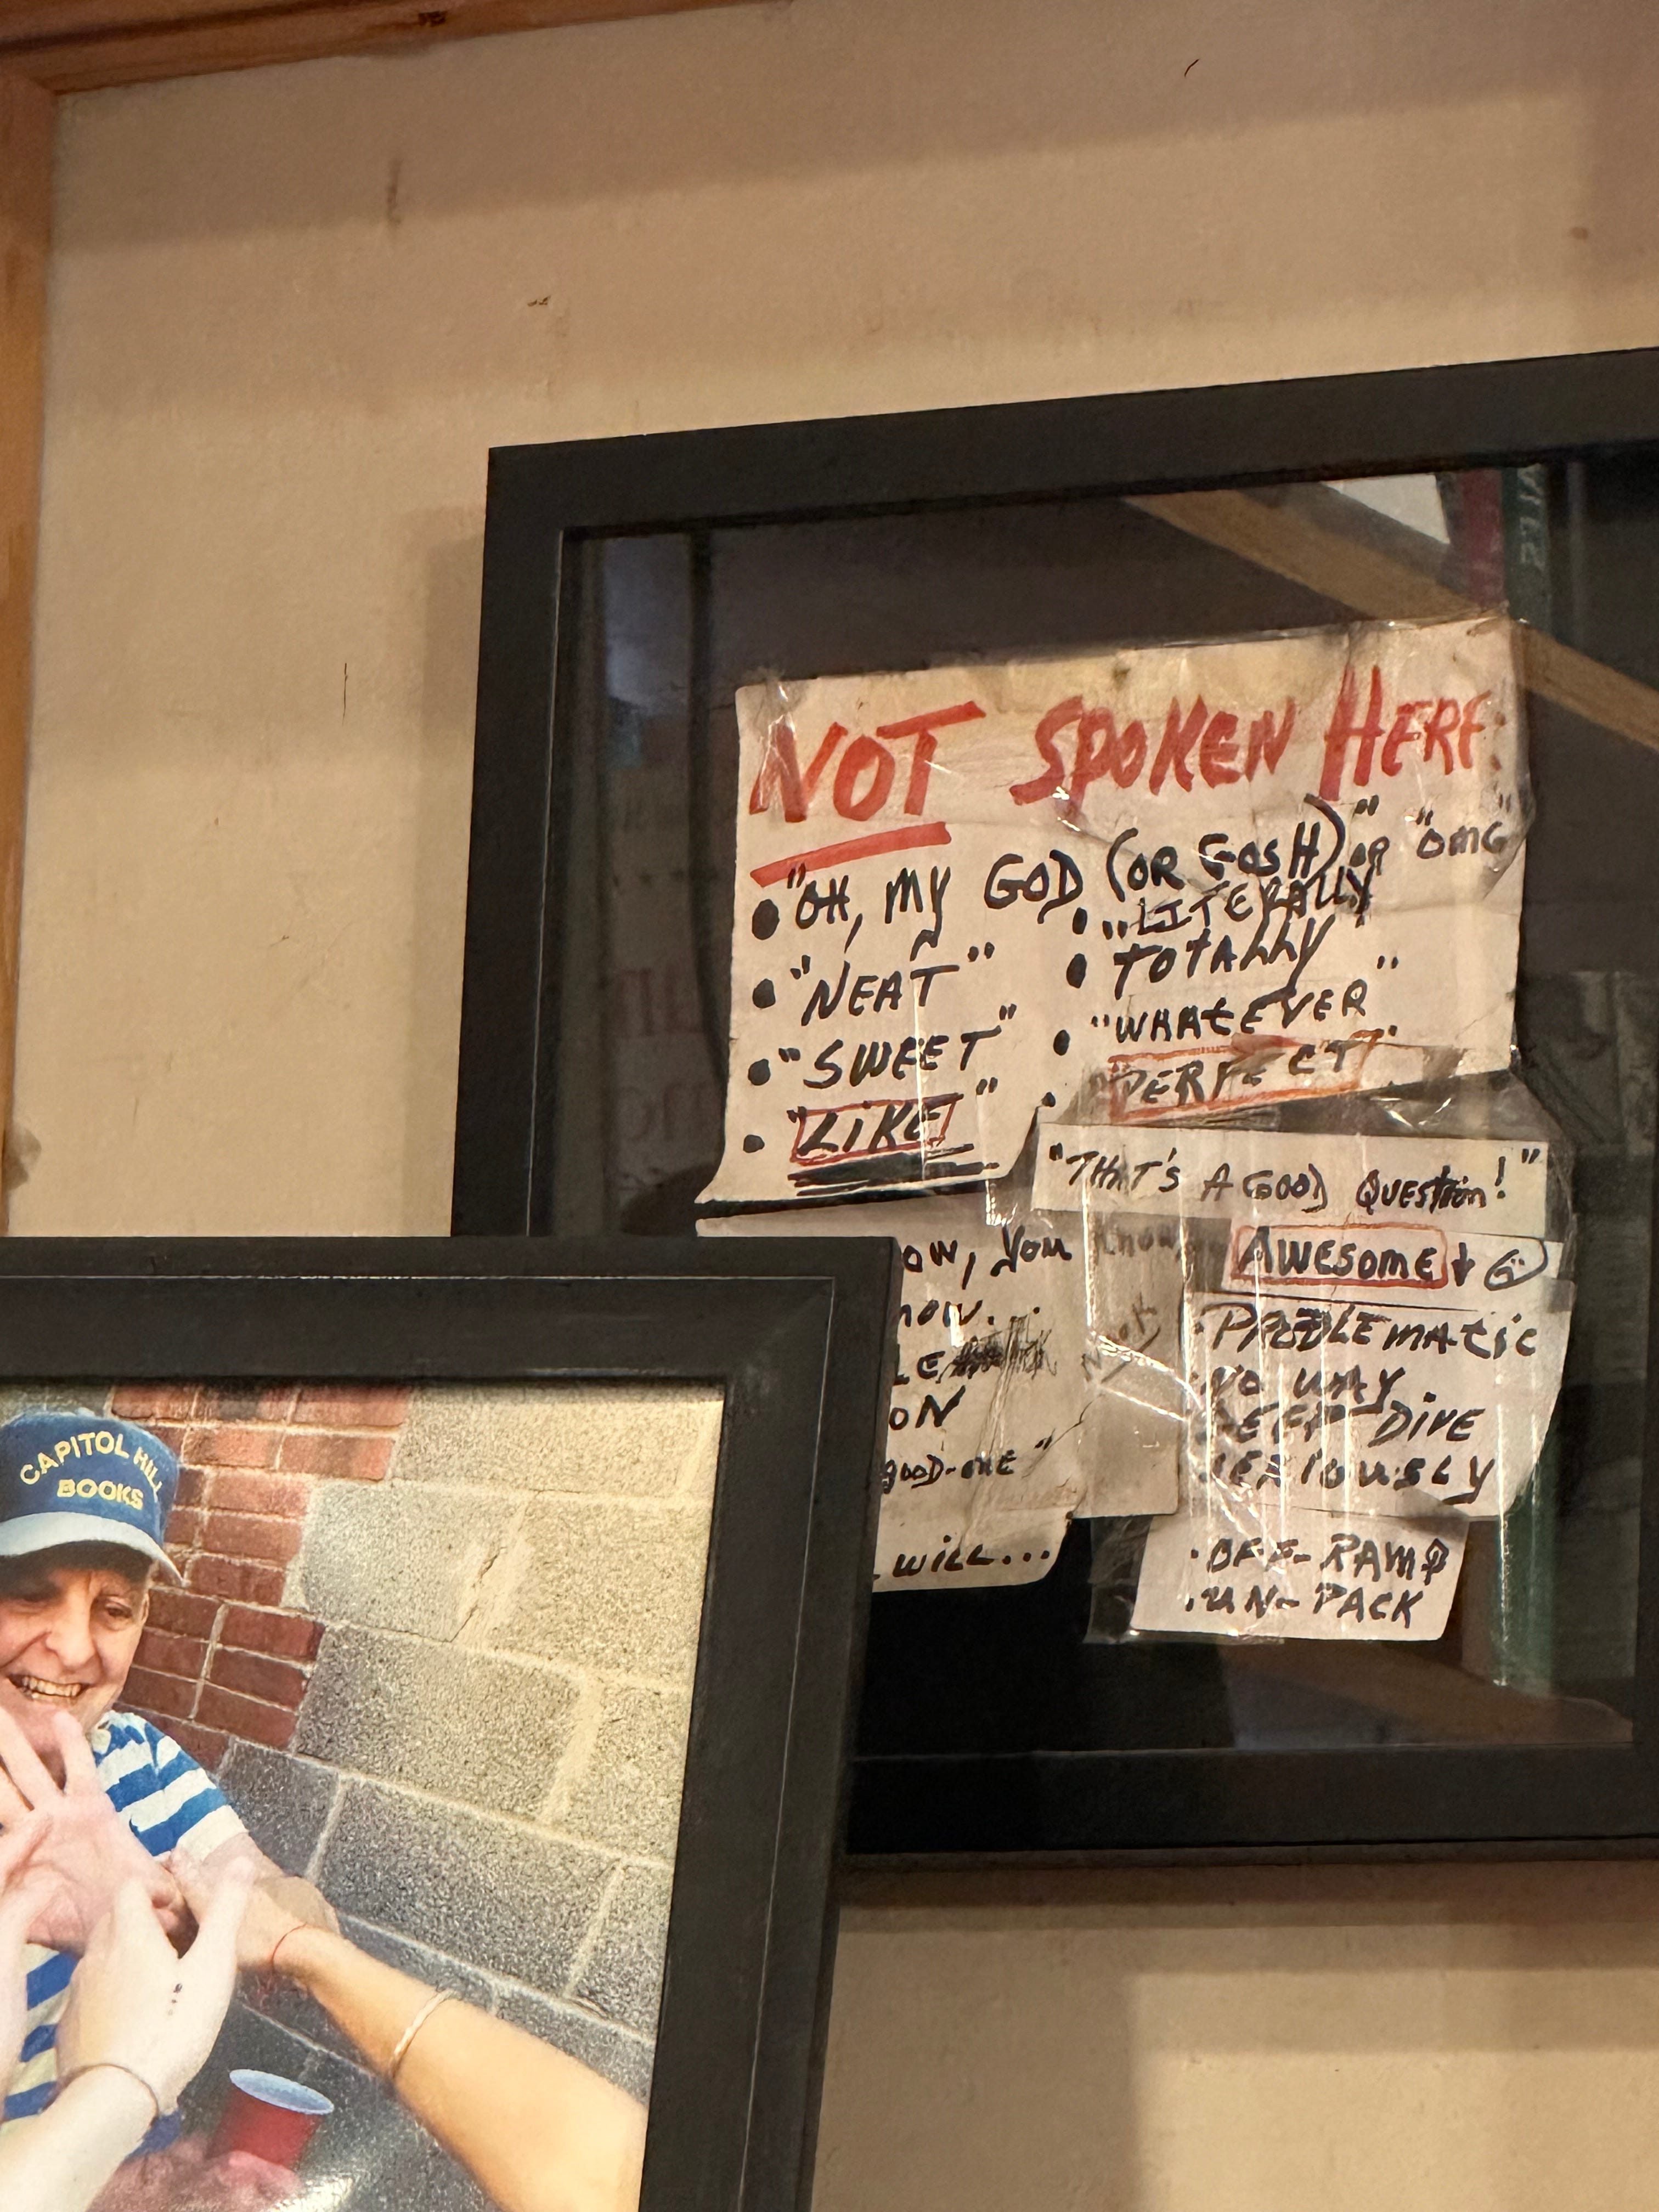 NOT SPOKEN HERE:
• "OH, MY GOD (OR GOSH)" OR "OMG"
• "NEAT"
• "SWEET"
• "LIKE"
• "LITERALLY"
• TOTALLY
• "WHATEVER"
• "PERFECT"
"THAT'S A GOOD QUESTION!"
AWESOME
OW, You know,
NOW...
LE
ON
GOOD-ONE"
WILL...
• PROBLEMATIC
• NO WAY
DEEP DIVE
SERIOUSLY
• OFF-RAMP
• UN-PACK
CAPITOL HILL
BOOKS